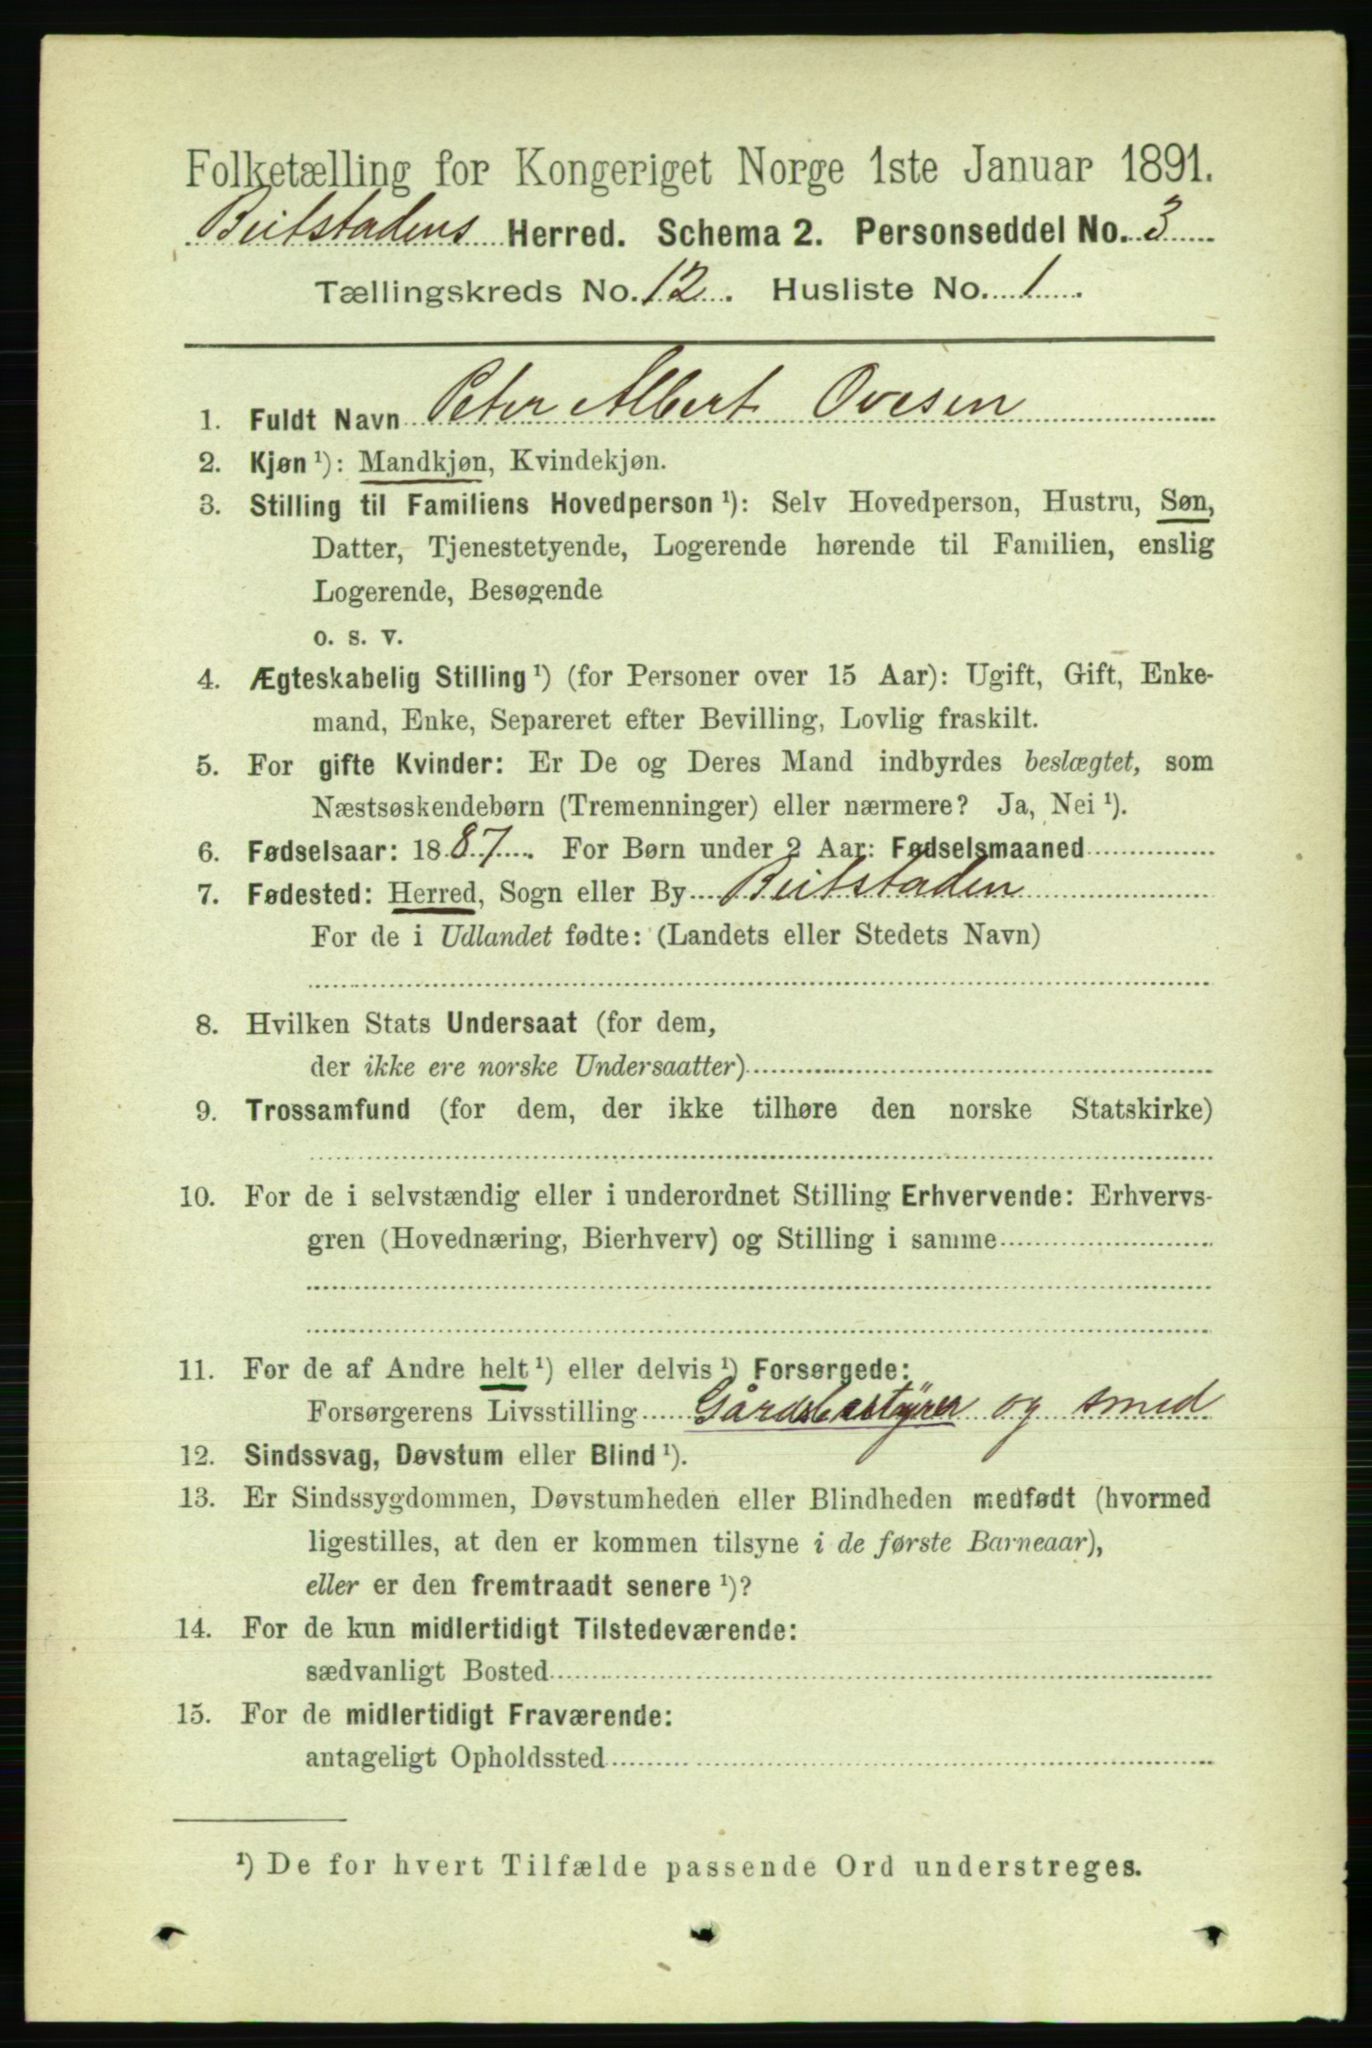 Folketælling for Kongeriget Norge 1ste Januar 1891.
Beitstadens Herred. Schema 2. Personseddel No. 3
Tællingskreds No. 12. Husliste No. 1.
1. Fuldt Navn Peter Albert Ovesen
2. Kjøn ¹): Mandkjøn, Kvindekjøn.
3. Stilling til Familiens Hovedperson ¹): Selv Hovedperson, Hustru, Søn,
Datter, Tjenestetyende, Logerende hørende til Familien, enslig
Logerende, Besøgende
o. s. v.
4. Ægteskabelig Stilling ¹) (for Personer over 15 Aar): Ugift, Gift, Enke-
mand, Enke, Separeret efter Bevilling, Lovlig fraskilt.
5. For gifte Kvinder: Er De og Deres Mand indbyrdes beslægtet, som
Næstsøskendebørn (Tremenninger) eller nærmere? Ja, Nei ¹).
6. Fødselsaar: 1887. For Børn under 2 Aar: Fødselsmaaned
7. Fødested: Herred, Sogn eller By Beitstaden
For de i Udlandet fødte: (Landets eller Stedets Navn)
8. Hvilken Stats Undersaat (for dem,
der ikke ere norske Undersaatter)
9. Trossamfund (for dem, der ikke tilhøre den norske Statskirke)
10. For de i selvstændig eller i underordnet Stilling Erhvervende: Erhvervs-
gren (Hovednæring, Bierhverv) og Stilling i samme
11. For de af Andre helt ¹) eller delvis ¹) Forsørgede:
Forsørgerens Livsstilling Gårdsbestyrer og smed
12. Sindssvag, Døvstum eller Blind ¹).
13. Er Sindssygdommen, Døvstumheden eller Blindheden medfødt (hvormed
ligestilles, at den er kommen tilsyne i de første Barneaar),
eller er den fremtraadt senere ¹)?
14. For de kun midlertidigt Tilstedeværende:
sædvanligt Bosted
15. For de midlertidigt Fraværende:
antageligt Opholdssted
¹) De for hvert Tilfælde passende Ord understreges.